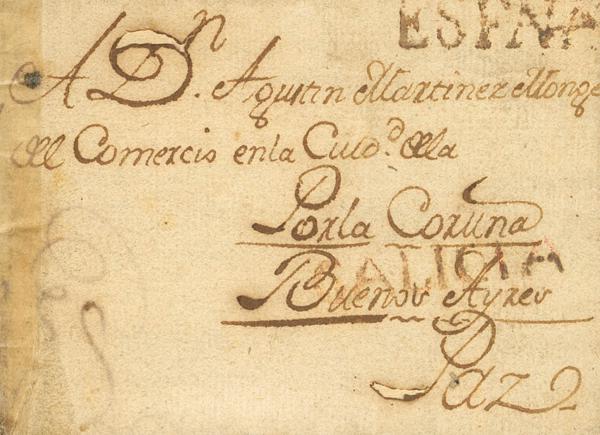 ESPAÑA
A Dn. Agustin Martinez Monge
del Comercio en la Ciudd. de la
Por la Coruña
GALICIA
Buenos Ayres
Paz